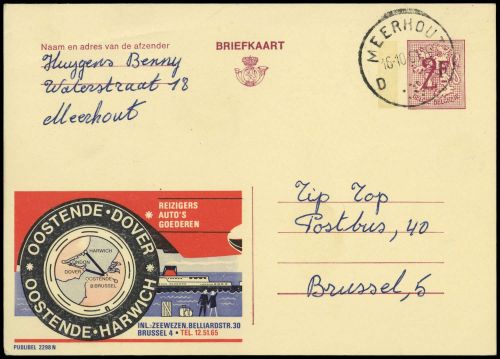 Naam en adres van de afzender
BRIEFKAART
Huygens Benny
Waterstraat 18
Meerhout
MEERHOUT
D
2F
REIZIGERS
AUTO'S
GOEDEREN
OOSTENDE·DOVER
OOSTENDE·HARWICH
HARWICH
LONDON
DOVER
OOSTENDE
BRUSSEL
INL.:ZEEWEZEN.BELLIARDSTR.30
BRUSSEL 4 • TEL. 12.51.65
PUBLIBEL 2298 N
Tip Top
Postbus, 40
Brussel, 5